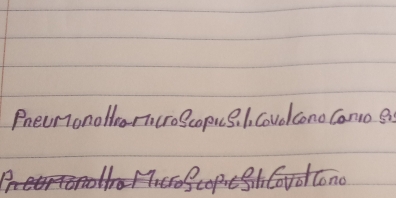 PneuMonoHraMicroScopicSiliCovolConoConio Sis
PneuMonoltraMicroScopicSiliCovolCono